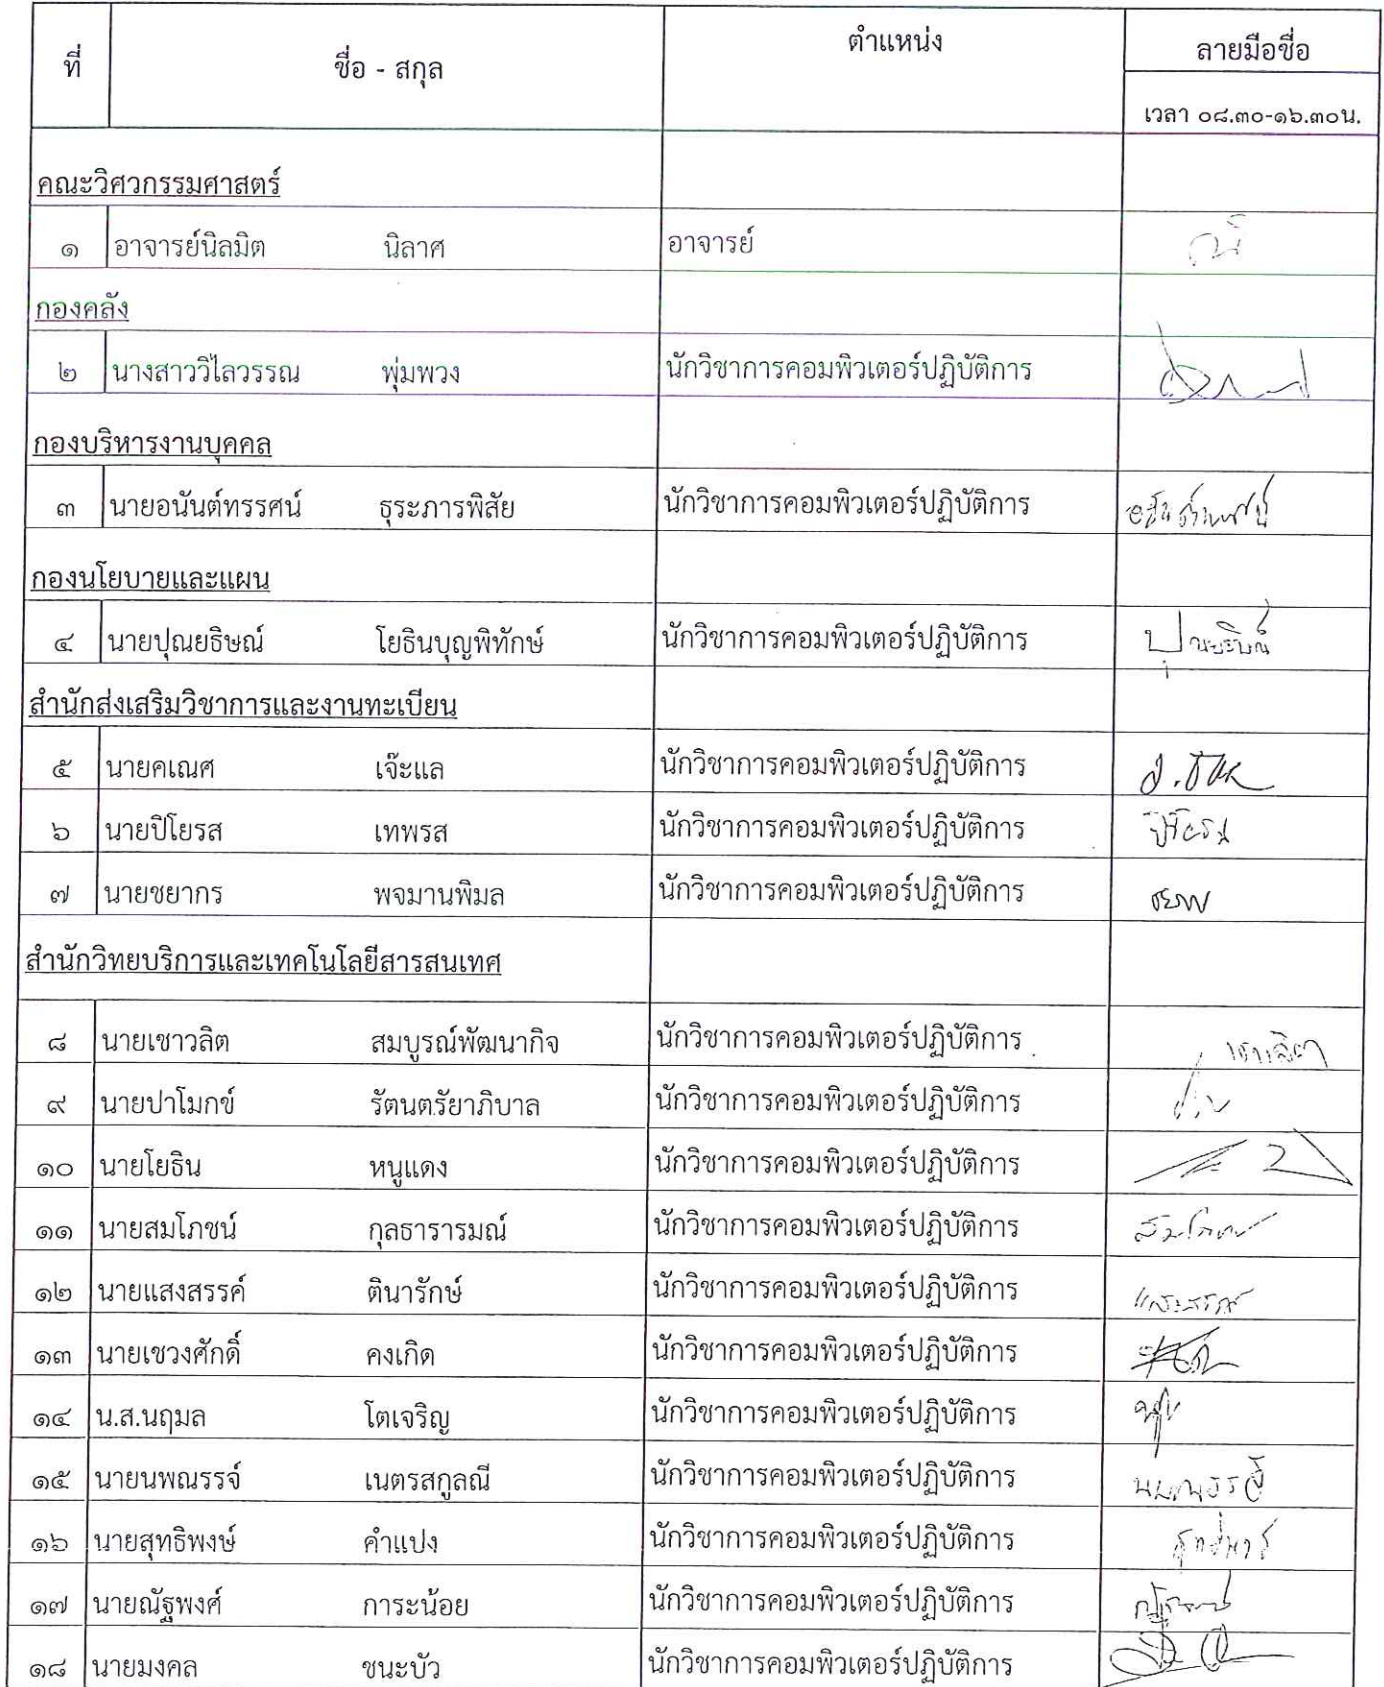 ที่ ชื่อ - สกุล ตำแหน่ง ลายมือชื่อ
เวลา ๐๘.๓๐-๑๖.๓๐น.
คณะวิศวกรรมศาสตร์
๑ อาจารย์นิลมิต นิลาศ อาจารย์
กองคลัง
๒ นางสาววิไลวรรณ พุ่มพวง นักวิชาการคอมพิวเตอร์ปฏิบัติการ
กองบริหารงานบุคคล
๓ นายอนันต์ทรรศน์ ธุระภารพิสัย นักวิชาการคอมพิวเตอร์ปฏิบัติการ
กองนโยบายและแผน
๔ นายปุณยธิษณ์ โยธินบุญพิทักษ์ นักวิชาการคอมพิวเตอร์ปฏิบัติการ
สำนักส่งเสริมวิชาการและงานทะเบียน
๕ นายคเณศ เจ๊ะแล นักวิชาการคอมพิวเตอร์ปฏิบัติการ
๖ นายปิโยรส เทพรส นักวิชาการคอมพิวเตอร์ปฏิบัติการ
๗ นายชยากร พจมานพิมล นักวิชาการคอมพิวเตอร์ปฏิบัติการ
สำนักวิทยบริการและเทคโนโลยีสารสนเทศ
๘ นายเชาวลิต สมบูรณ์พัฒนากิจ นักวิชาการคอมพิวเตอร์ปฏิบัติการ เชาวลิต
๙ นายปาโมกข์ รัตนตรัยาภิบาล นักวิชาการคอมพิวเตอร์ปฏิบัติการ
๑๐ นายโยธิน หนูแดง นักวิชาการคอมพิวเตอร์ปฏิบัติการ
๑๑ นายสมโภชน์ กุลธารารมณ์ นักวิชาการคอมพิวเตอร์ปฏิบัติการ
๑๒ นายแสงสรรค์ ตินารักษ์ นักวิชาการคอมพิวเตอร์ปฏิบัติการ
๑๓ นายเชวงศักดิ์ คงเกิด นักวิชาการคอมพิวเตอร์ปฏิบัติการ
๑๔ น.ส.นฤมล โตเจริญ นักวิชาการคอมพิวเตอร์ปฏิบัติการ
๑๕ นายนพณรรจ์ เนตรสกูลณี นักวิชาการคอมพิวเตอร์ปฏิบัติการ นพณรรจ์
๑๖ นายสุทธิพงษ์ คำแปง นักวิชาการคอมพิวเตอร์ปฏิบัติการ
๑๗ นายณัฐพงศ์ การะน้อย นักวิชาการคอมพิวเตอร์ปฏิบัติการ
๑๘ นายมงคล ชนะบัว นักวิชาการคอมพิวเตอร์ปฏิบัติการ